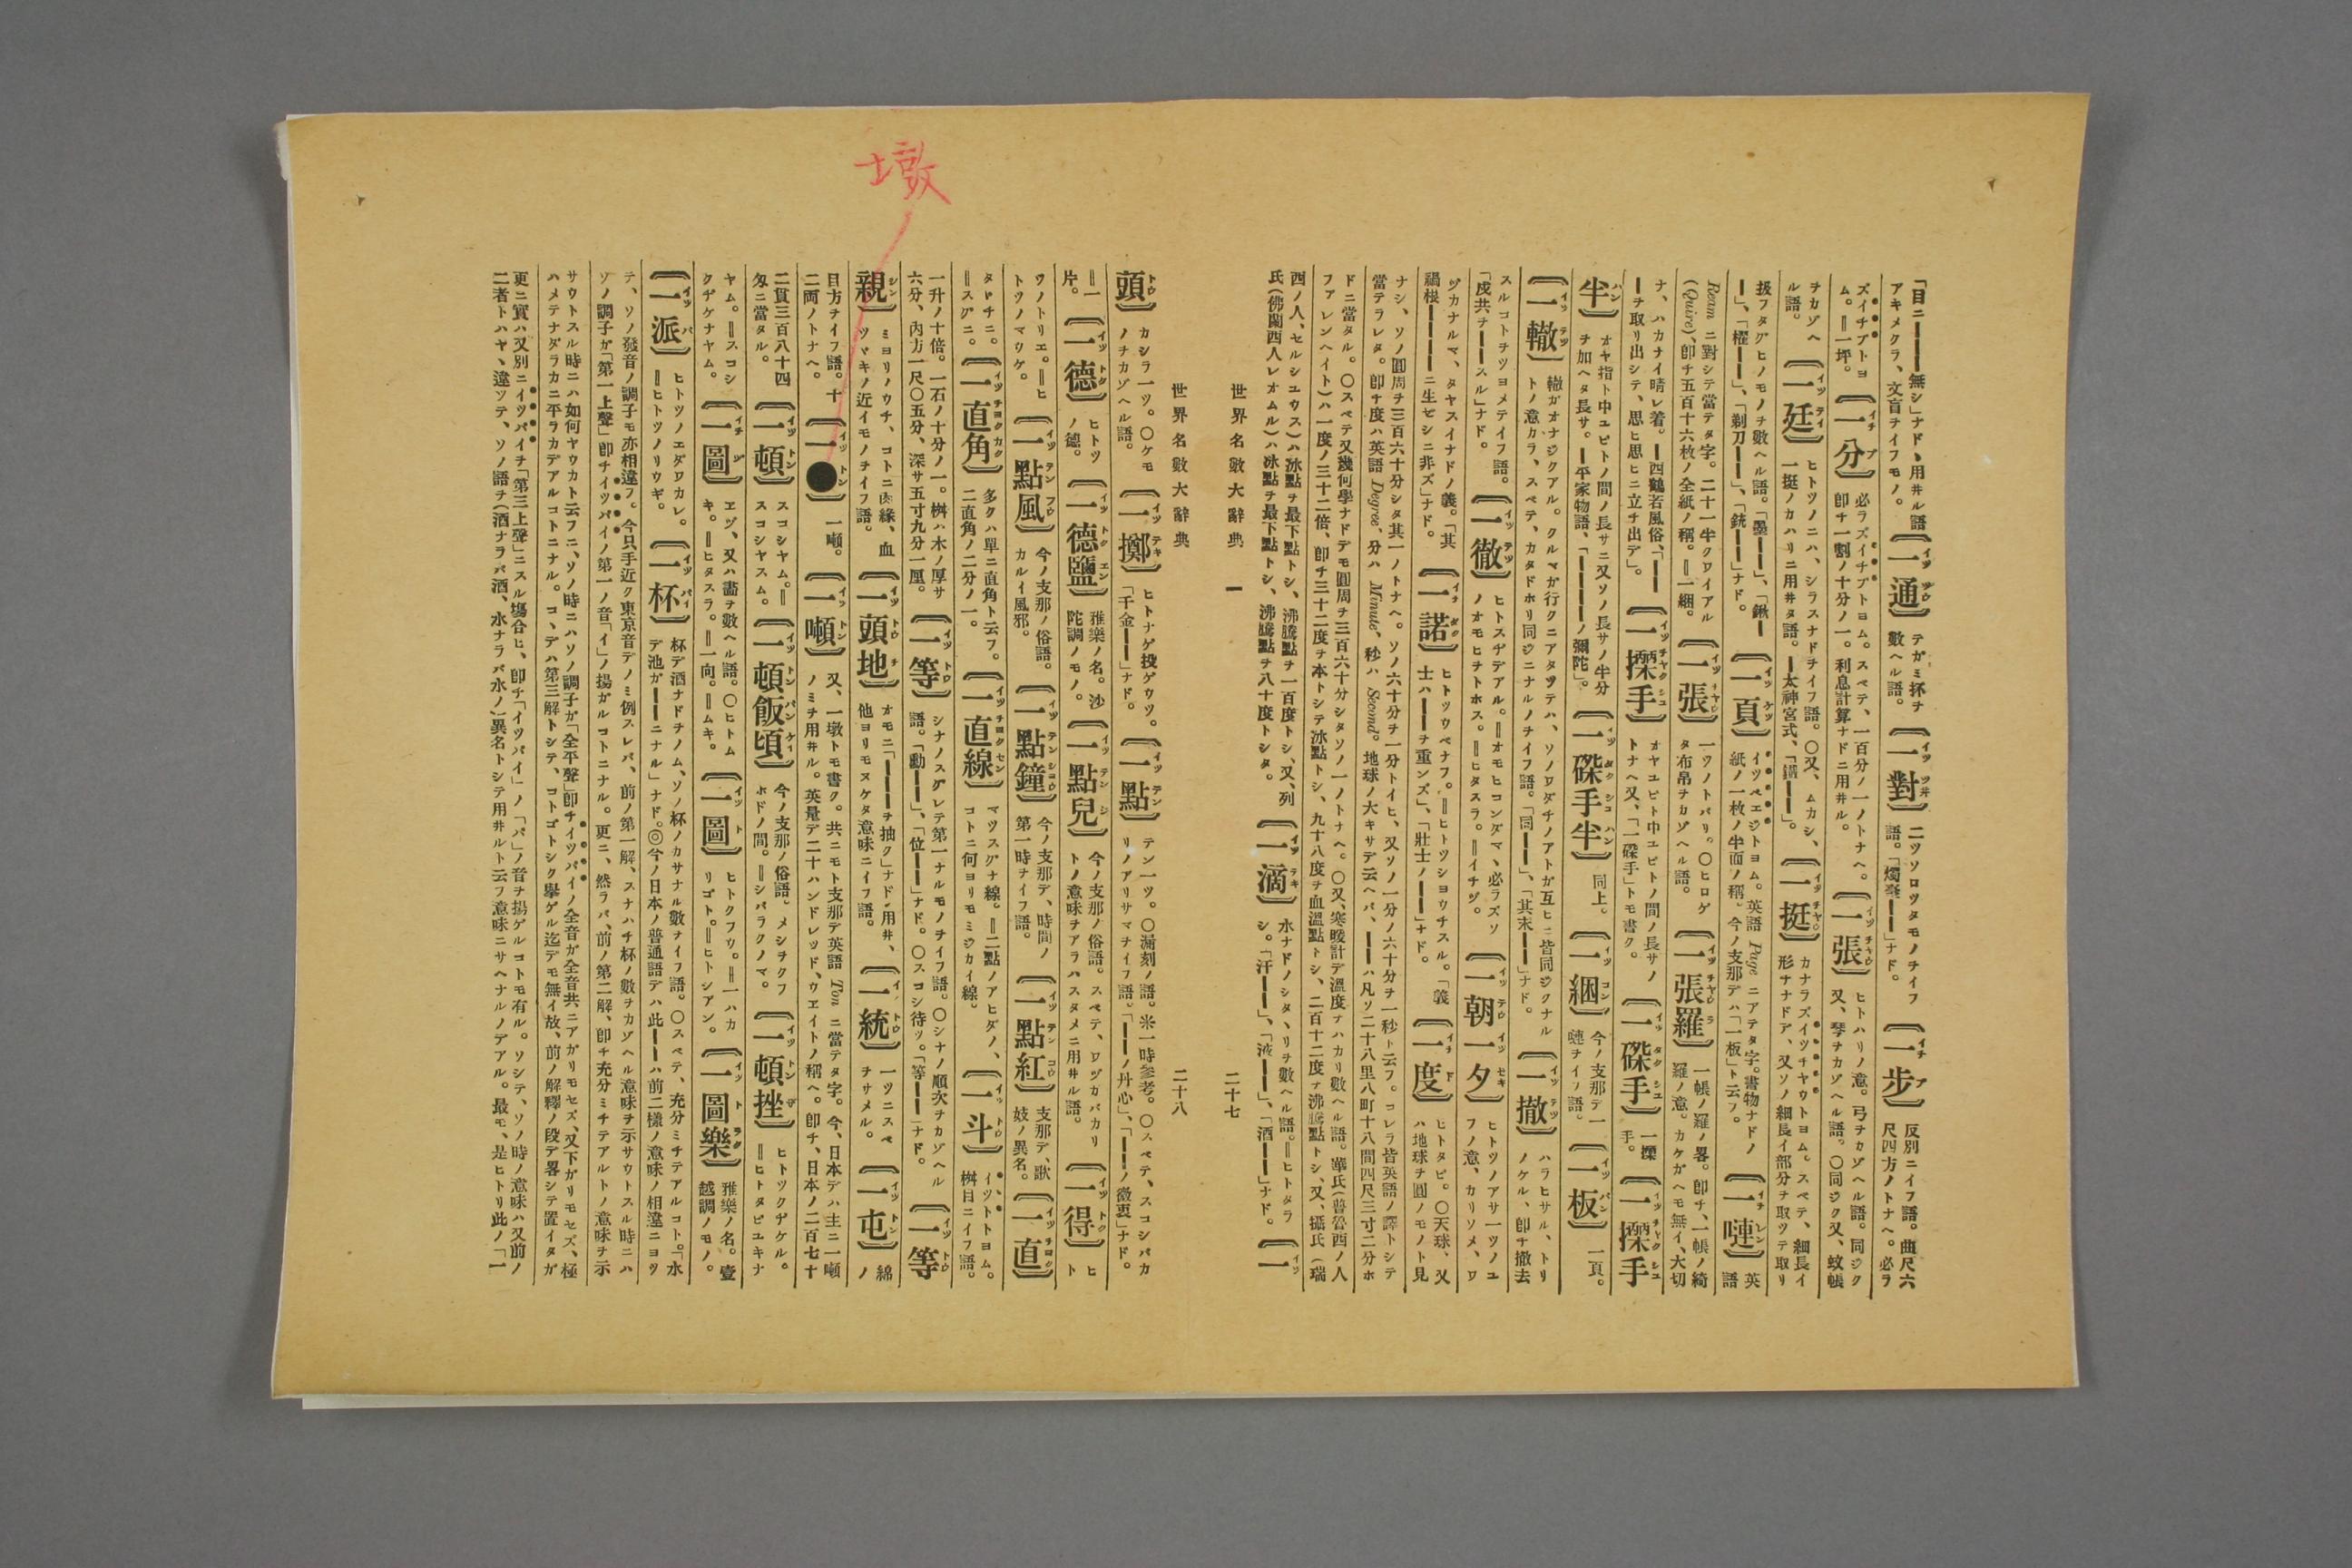 墩
「目ニ――無シ」ナド、用井ル語
アキメクラ、文盲チイフモノ。
〔一通〕 テガミ抔チ數ヘル語。
〔一對〕 二ツソロツタモノチイフ語。「燭臺――」ナド。
〔一步〕 反別ニイフ語。曲尺六尺四方ノトナヘ。必ラ
ズイチブトヨム。＝一坪。
〔一分〕 必ラズイチブトヨム。スベテ、一百分ノ一ノトナヘ。卽チ一割ノ十分ノ一。利息計算ナドニ用井ル。
〔一張〕 ヒトハリノ意。弓チカゾヘル語。同ジク又、琴チカゾヘル語。〇同ジク又、蚊帳
チカゾヘル語。
〔一廷〕 ヒトツノニハ、シラスナドチイフ語。〇又、ムカシ、一挺ノカハリニ用井タ語。
〔一挺〕 カナラズイツチヤウトヨム。スベテ、細長イ形ナナドア、又ソノ細長イ部分チ取ツテ取リ
扱フタグヒノモノチ數ヘル語。「墨――」、「鍬――」、「櫂――」、「剃刀――」、「銃――」ナド。
〔一頁〕 イツペエジトヨム。英語 Page ニアテタ字。書物ナドノ紙ノ一枚ノ半面ノ稱。今ノ支那デハ「一板」ト云フ。
〔一嗹〕 英語
Ream ニ對シテ當テタ字。二十一半クワイアル(Quire)、卽チ五百十六枚ノ全紙ノ稱。＝一綑。
〔一張〕 一ワノトバリ。〇ヒロゲタ布帛チカゾヘル語。
〔一張羅〕 一帳ノ羅ノ畧。卽チ、一帳ノ綺羅ノ意。カケガヘモ無イ、大切
ナ、ハカナイ晴レ着。
〔一搩手〕 オヤユビト中ユビトノ間ノ長サノトナヘ又、「一磔手」トモ書ク。
〔一磔手〕 一搩手。
〔一搩手
半〕 オヤ指ト中ユビトノ間ノ長サニ又ソノ長サノ半分チ加ヘタ長サ。
〔一磔手半〕 同上。
〔一綑〕 今ノ支那デ一嗹チイフ語。
〔一板〕 一頁。
〔一轍〕 轍ガオナジクアル。クルマガ行クニアタツテハ、ソノワダチノアトガ互ヒニ皆同ジクナルトノ意カラ、スベテ、カタドホリ同ジニナルノチイフ語。
〔一撤〕 ハラヒサル、トリノケル、卽チ撤去
スルコトチツヨメテイフ語。
〔一徹〕 ヒトスヂデアル。＝オモヒコンダマヽ必ラズソノオモヒチトホス。＝ヒタスラ。＝イチヅ。
〔一朝一夕〕 ヒトツノアサ一ツノユフノ意、カリソメ、ワ
ヅカナルマ、タヤスイナドノ義。
〔一諾〕 ヒトツウベナフ。＝ヒトツシヨウチスル。
〔一度〕 ヒトタビ。〇天球、又ハ地球チ圓ノモノト見
ナシ、ソノ圓周チ三百六十分シタ其一ノトナヘ。ソノ六十分チ一分トイヒ、又ソノ一分ノ六十分チ一秒ト云フ。コレラ皆英語ノ譯トシテ
當テラレタ。卽チ度ハ英語 Degree、分ハ Minute、秒ハ Second。地球ノ大キサデ云ヘバ、――ハ凡ソ二十八里八町十八間四尺三寸二分ホ
ドニ當タル。〇スベテ又幾何學ナドデモ圓周チ三百六十分シタソノ一ノトナヘ。〇又、寒暖計デ溫度チハカリ數ヘル語。華氏(普魯西ノ人
フアレンヘイト)ハ一度ノ三十二倍、卽チ三十二度チ本トシテ冰點トシ、九十八度チ血溫點トシ、二百十二度チ沸騰點トシ、又、攝氏(瑞
西ノ人、セルシユウス)ハ冰點チ最下點トシ、沸騰點チ一百度トシ、又、列
氏(佛蘭西人レオムル)ハ冰點チ最下點トシ、沸騰點チ八十度トシタ。
〔一滴〕 水ナドノシタヽリチ數ヘル語。＝ヒトタラシ。「汗――」、「液――」、「酒――」ナド。
〔一
世界名數大辭典 一 二十七
世界名數大辭典 二十八
頭〕 カシラ一ツ。〇ケモノチカゾヘル語。
〔一擲〕 ヒトナゲ投ゲウツ。「千金――」ナド。
〔一點〕 テン一ツ。〇漏刻ノ語。米一時參考。〇スベテ、スコシバカリノアリサマチイフ語。「――ノ丹心」、「――ノ微衷」ナド。
＝一片。
〔一德〕 ヒトツノ德。
〔一德鹽〕 雅樂ノ名。沙陀調ノモノ。
〔一點兒〕 今ノ支那ノ俗語。スベテ、ワヅカバカリトノ意味チアラハスタメニ用井ル語。
〔一得〕 ヒト
ツノトリエ。＝ヒトツノマウケ。
〔一點風〕 今ノ支那ノ俗語。カルイ風邪。
〔一點鐘〕 今ノ支那デ、時間ノ第一時チイフ語。
〔一點紅〕 支那デ、歌妓ノ異名。
〔一直〕
タヾチニ。＝スグニ。
〔一直角〕 多クハ單ニ直角ト云フ。二直角ノ二分ノ一。
〔一直線〕 マツスグナ線。＝二點ノアヒダノ、コトニ何ヨリモミジカイ線。
〔一斗〕 イツトトヨム。桝目ニイフ語。
一升ノ十倍。一石ノ十分ノ一。桝ハ木ノ厚サ六分、內方一尺〇五分、深サ五寸九分一厘。
〔一等〕 シナノスグレテ第一ナルモノチイフ語。〇シナノ順次チカゾヘル語。「勳――」、「位――」ナド。〇スコシ待ツ。「等――」ナド。
〔一等
親〕 ミヨリノウチ、コトニ肉緣、血ツヾキノ近イモノチイフ語。
〔一頭地〕 オモニ「――チ抽ク」ナド、用井、他ヨリモヌケタ意味ニイフ語。
〔一統〕 一ツニスベチサメル。
〔一屯〕 綿ノ
目方チイフ語。十二兩ノトナヘ。
〔一●〕 一噸。
〔一噸〕 又、一墩トモ書ク。共ニモト支那デ英語 Ton ニ當テタ字。今、日本デハ主ニ一噸ノミチ用井ル。英量デ二十ハンドレツド、ウエイトノ稱ヘ。卽チ、日本ノ二百七十
二貫三百八十四匁ニ當タル。
〔一頓〕 スコシヤム。＝スコシヤスム。
〔一頓飯頃〕 今ノ支那ノ俗語。メシチクフホドノ間。＝シバラクノマ。
〔一頓挫〕 ヒトツクヂケル。＝ヒトタビユキナ
ヤム。＝スコシクヂケナヤム。
〔一圖〕 エヅ、又ハ畫チ數ヘル語。〇ヒトムキ。＝ヒタスラ。＝一向。＝ムキ。
〔一圖〕 ヒトクフウ。＝一ハカリゴト。＝ヒトシアン。
〔一圖樂〕 雅樂ノ名。壹越調ノモノ。
〔一派〕 ヒトツノエダワカレ。＝ヒトツノリウギ。
〔一杯〕 杯デ酒ナドチノム、ソノ杯ノカサナル數チイフ語。〇スベテ、充分ミチテアルコト。「水デ池ガ――ニナル」ナド。◎今ノ日本ノ普通語デハ此――ハ前二樣ノ意味ノ相違ニヨツ
テ、ソノ發音ノ調子モ亦相違フ。今只手近ク東京音デノミ例スレバ、前ノ第一解、スナハチ杯ノ數チカゾヘル意味チ示サウトスル時ニハ
ソノ調子ガ「第一上聲」卽チイツパイノ第一ノ音「イ」ノ揚ガルコトニナル。更ニ、然ラバ、前ノ第二解、卽チ充分ミチテアルトノ意味チ示
サウトスル時ニハ如何ヤウカト云フニ、ソノ時ニハソノ調子ガ「全平聲」卽チイツパイノ全音ガ全音共ニアガリモセズ、又下ガリモセズ、極
ハメテナダラカニ平ラカデアルコトニナル。コヽデハ第三解トシテ、コトゴトシク擧ゲル迄デモ無イ故、前ノ解釋ノ段デ畧シテ置イタガ
更ニ實ハ又別ニイツパイチ「第三上聲」ニスル塲合ヒ、卽チ「イツパイ」ノ「パ」ノ音チ揚ゲルコトモ有ル。ソシテ、ソノ時ノ意味ハ又前ノ
二者トハヤヽ違ツテ、ソノ語チ(酒ナラバ酒、水ナラバ水ノ)異名トシテ用井ルト云フ意味ニサヘナルノデアル。最モ、是ヒトリ此ノ「一